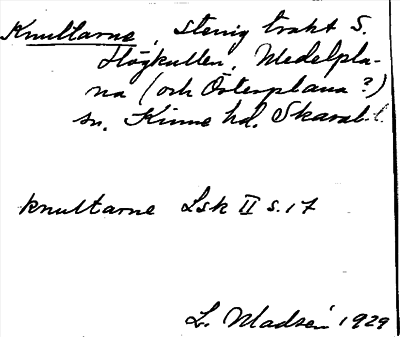 Knuttarne, stenig trakt S.
Högkullen, Medelpla-
na (och Österplana?)
sn, Kinne hd, Skarab. l.
knuttarne Lsk II s. 17
L. Madsén 1929